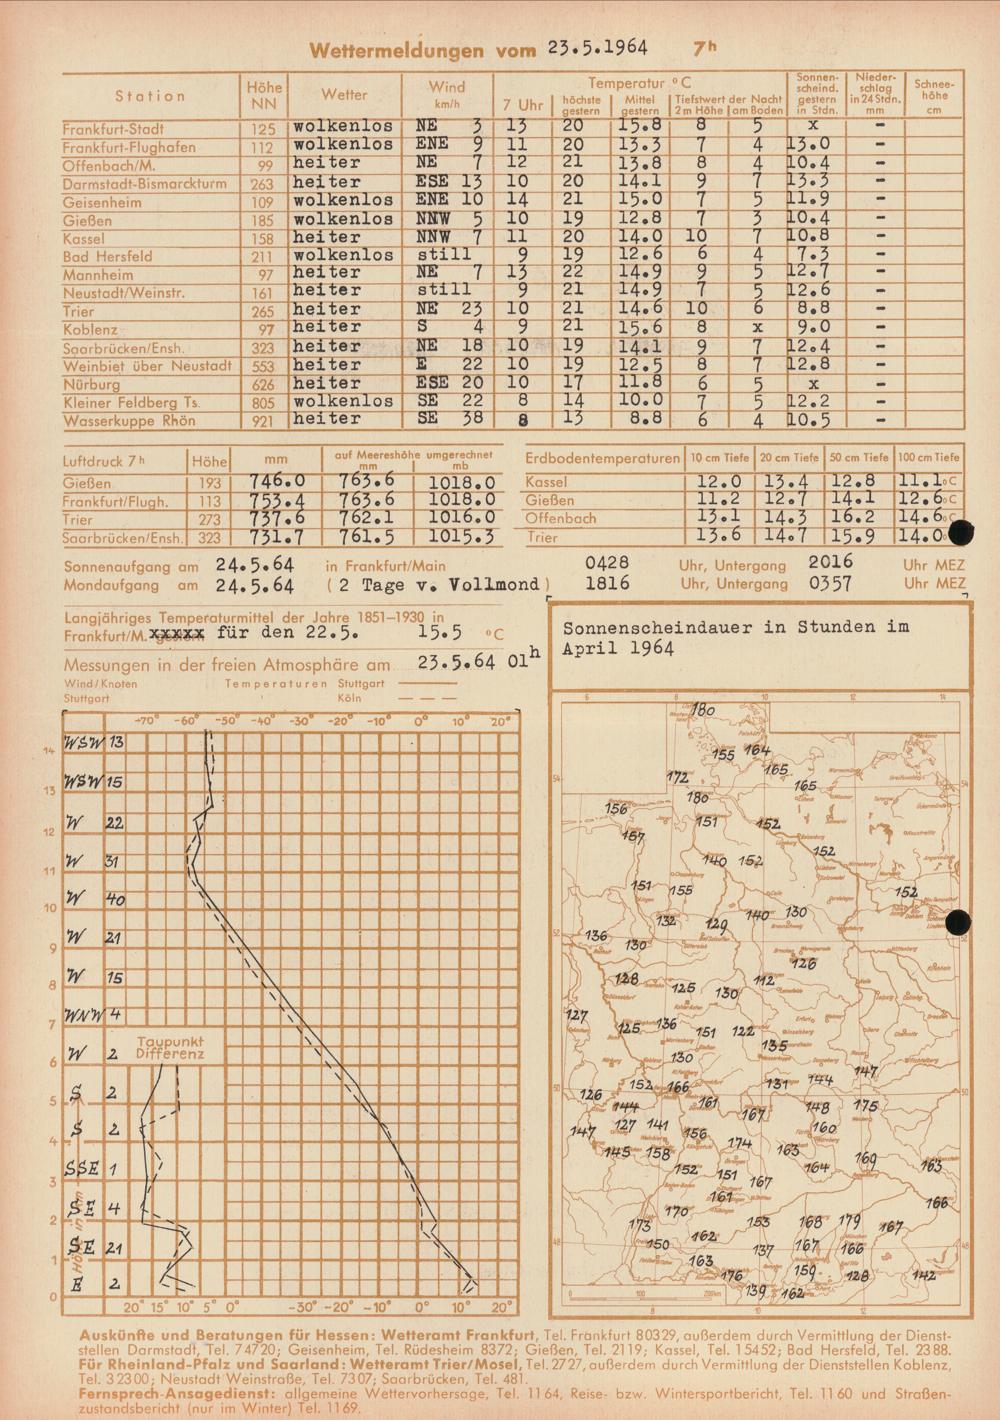 Wettermeldungen vom 23.5.1964 7h
Station Höhe NN Wetter Wind km/h Temperatur °C Sonnen-scheind. gestern in Stdn. Nieder-schlag in 24 Stdn. mm Schnee-höhe cm
7 Uhr höchste gestern Mittel gestern Tiefstwert der Nacht 2 m Höhe am Boden
Frankfurt-Stadt 125 wolkenlos NE 3 13 20 15.8 8 5 x -
Frankfurt-Flughafen 112 wolkenlos ENE 9 11 20 13.3 7 4 13.0 -
Offenbach/M. 99 heiter NE 7 12 21 13.8 8 4 10.4 -
Darmstadt-Bismarckturm 263 heiter ESE 13 10 20 14.1 9 7 13.3 -
Geisenheim 109 wolkenlos ENE 10 14 21 15.0 7 5 11.9 -
Gießen 185 wolkenlos NNW 5 10 19 12.8 7 3 10.4 -
Kassel 158 heiter NNW 7 11 20 14.0 10 7 10.8 -
Bad Hersfeld 211 wolkenlos still 9 19 12.6 6 4 7.3 -
Mannheim 97 heiter NE 7 13 22 14.9 9 5 12.7 -
Neustadt/Weinstr. 161 heiter still 9 21 14.9 7 5 12.6 -
Trier 265 heiter NE 23 10 21 14.6 10 6 8.8 -
Koblenz 97 heiter S 4 9 21 15.6 8 x 9.0 -
Saarbrücken/Ensh. 323 heiter NE 18 10 19 14.1 9 7 12.4 -
Weinbiet über Neustadt 553 heiter E 22 10 19 12.5 8 7 12.8 -
Nürburg 626 heiter ESE 20 10 17 11.8 6 5 x -
Kleiner Feldberg Ts. 805 wolkenlos SE 22 8 14 10.0 7 5 12.2 -
Wasserkuppe Rhön 921 heiter SE 38 8 13 8.8 6 4 10.5 -
Luftdruck 7h Höhe mm auf Meereshöhe umgerechnet mm mb
Gießen 193 746.0 763.6 1018.0
Frankfurt/Flugh. 113 753.4 763.6 1018.0
Trier 273 737.6 762.1 1016.0
Saarbrücken/Ensh. 323 731.7 761.5 1015.3
Erdbodentemperaturen 10 cm Tiefe 20 cm Tiefe 50 cm Tiefe 100 cm Tiefe
Kassel 12.0 13.4 12.8 11.1 °C
Gießen 11.2 12.7 14.1 12.6 °C
Offenbach 13.1 14.3 16.2 14.6 °C
Trier 13.6 14.7 15.9 14.0
Sonnenaufgang am 24.5.64 in Frankfurt/Main 0428 Uhr, Untergang 2016 Uhr MEZ
Mondaufgang am 24.5.64 (2 Tage v. Vollmond) 1816 Uhr, Untergang 0357 Uhr MEZ
Langjähriges Temperaturmittel der Jahre 1851–1930 in
Frankfurt/M. xxxxx für den 22.5. 15.5 °C
Messungen in der freien Atmosphäre am 23.5.64 01h
Wind/Knoten Temperaturen Stuttgart
Stuttgart Köln
-70° -60° -50° -40° -30° -20° -10° 0° 10° 20°
14 WSW 13
WSW 15
13
W 22
12
W 31
11
W 40
10
W 21
9
W 15
8
WNW 4
7
W 2
Taupunkt
Differenz
6
S 2
5
S 2
4
SSE 1
3
SE 4
2
SE 21
1
E 2
0
Höhe in km
20° 15° 10° 5° 0° -30° -20° -10° 0° 10° 20°
Sonnenscheindauer in Stunden im
April 1964
6 8 10 12 14
180
155 164
172 165
165
180
156
151 152
157
152
140 152
151 155 152
132 129 140 130
136 130
126
128 125 130 112
127
125 136 151 122 135
130
147
152 166 131 144
126
144 161 167 148 175
147 127 141 156 160
145 158 174 163
152 151 167 164 169 163
161 166
170
173 153 168 179 167
150 162 137 167 166
163 176 159 128 142
139 162
0 100 200km
8 10 12
Auskünfte und Beratungen für Hessen: Wetteramt Frankfurt, Tel. Frankfurt 80329, außerdem durch Vermittlung der Dienst-
stellen Darmstadt, Tel. 74720; Geisenheim, Tel. Rüdesheim 8372; Gießen, Tel. 2119; Kassel, Tel. 15452; Bad Hersfeld, Tel. 2388.
Für Rheinland-Pfalz und Saarland: Wetteramt Trier/Mosel, Tel. 2727, außerdem durch Vermittlung der Dienststellen Koblenz,
Tel. 32300; Neustadt Weinstraße, Tel. 7307; Saarbrücken, Tel. 481.
Fernsprech-Ansagedienst: allgemeine Wettervorhersage, Tel. 1164, Reise- bzw. Wintersportbericht, Tel. 1160 und Straßen-
zustandsbericht (nur im Winter) Tel. 1169.